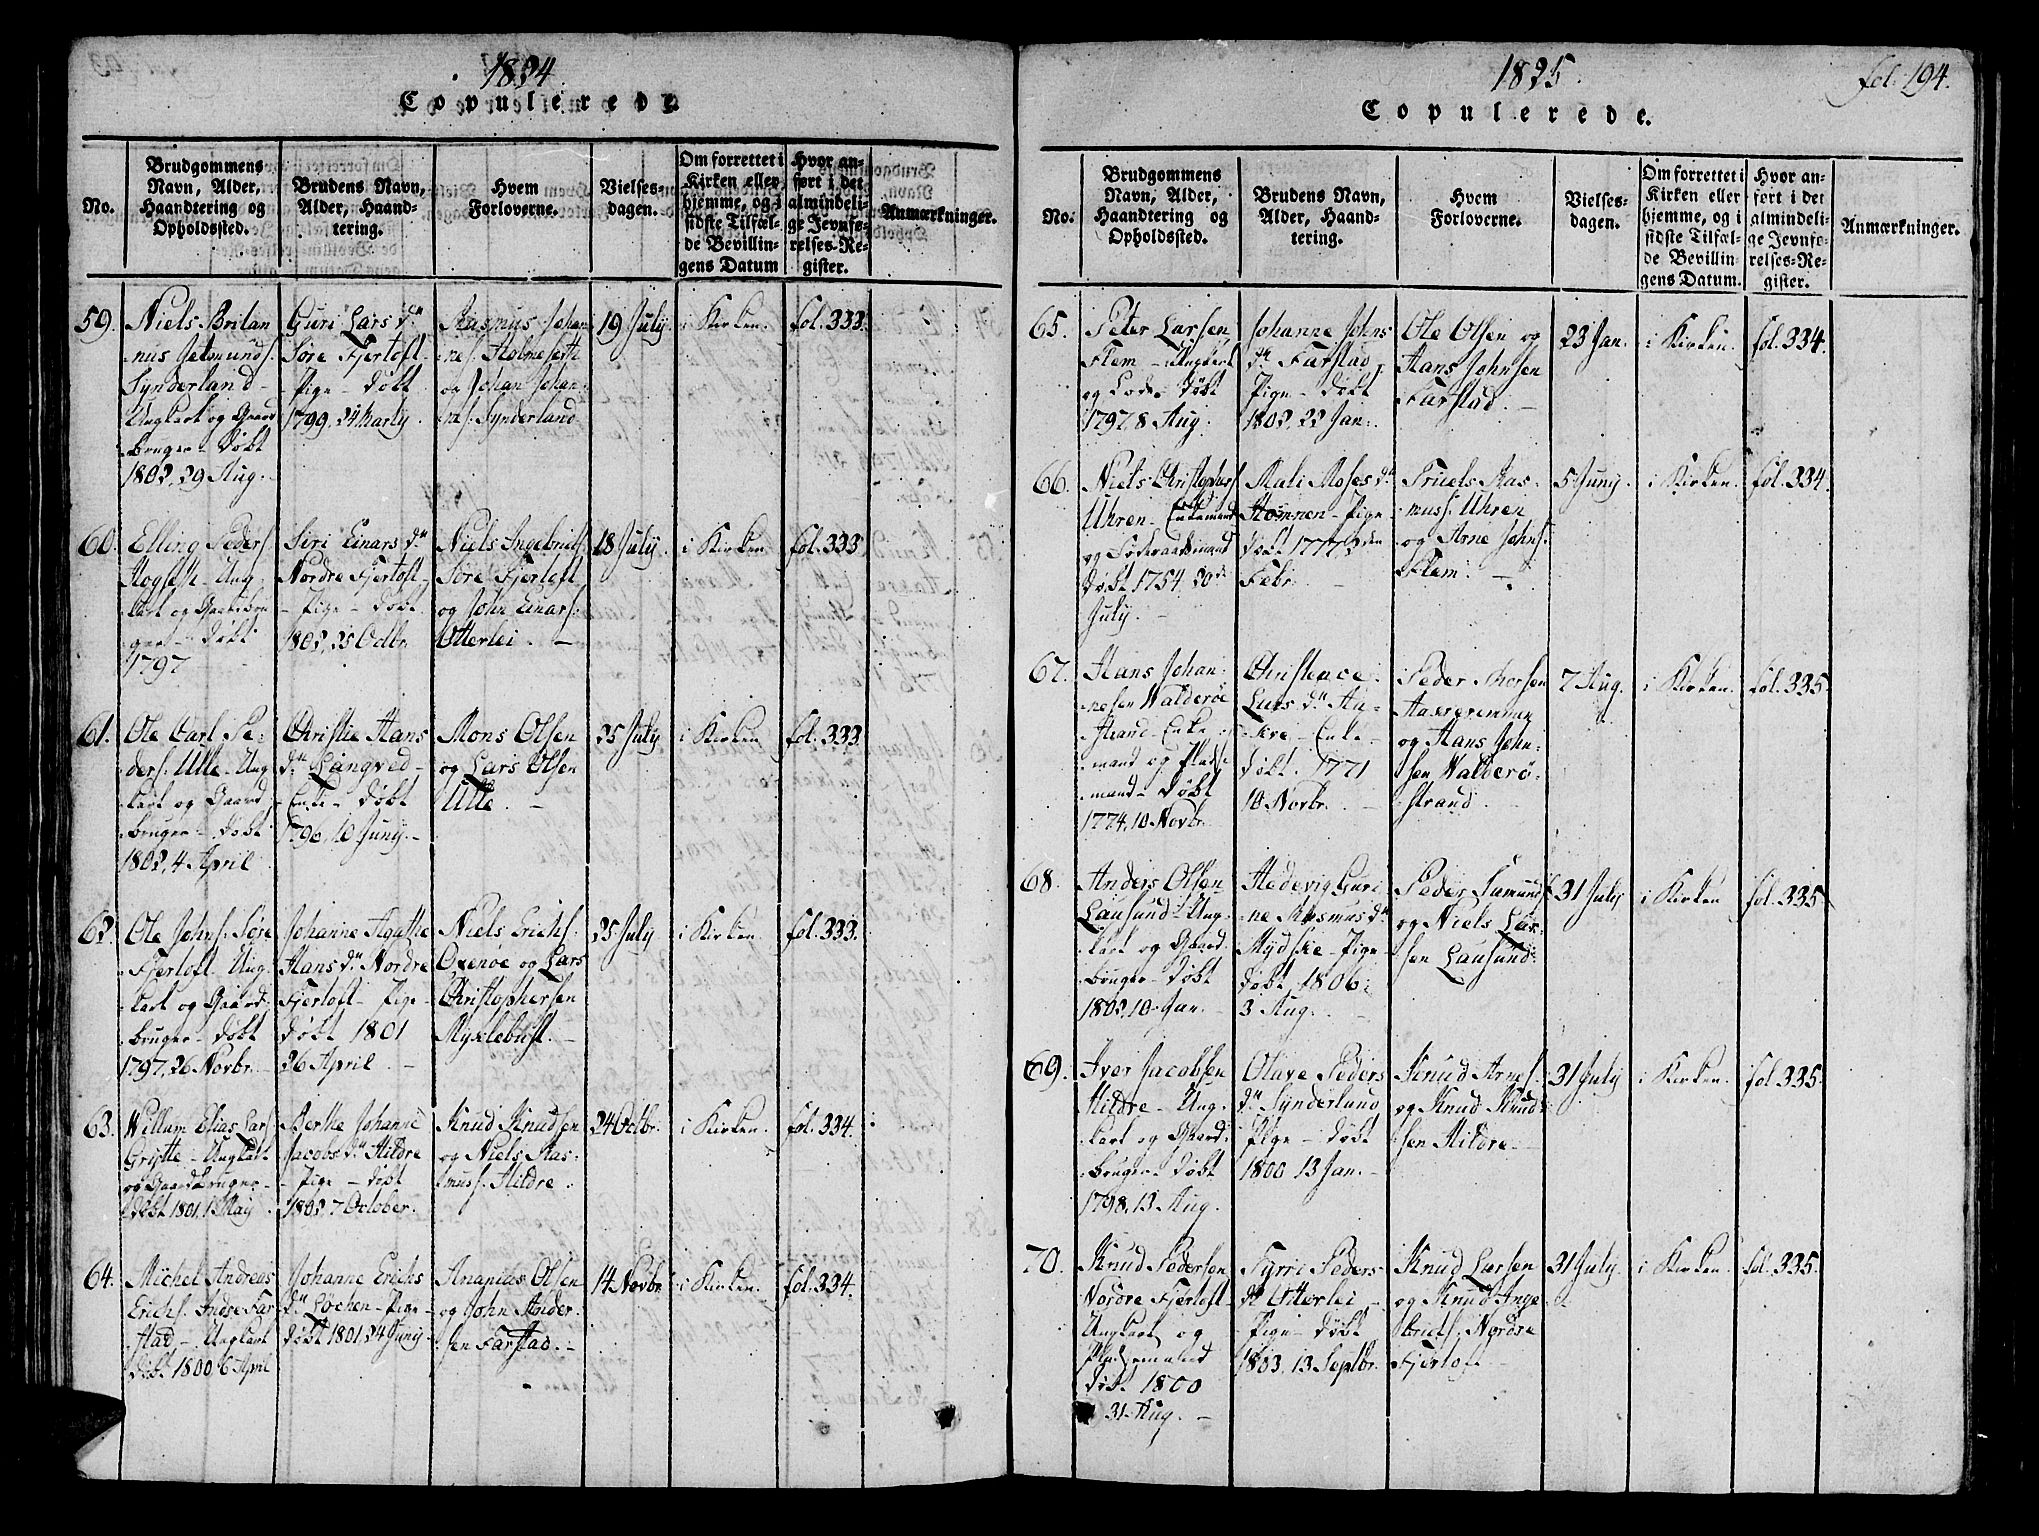 1824
Copulerede.
No.
Brudgommens
Navn, Alder,
Haandtering og
Opholdssted.
Brudens Navn,
Alder, Haand-
tering.
Hvem
Forloverne.
Vielses-
dagen.
Om forrettet i
Kirken eller
hjemme, og i
sidste Tilfæl-
de Bevillin-
gens Datum
Hvor an-
ført i det
almindeli-
ge Jevnfø-
relses-Re-
gister.
Anmærkninger.
59.
Niels Britan
nus Jetmunds.
Synderland -
Ungkarl og Gaard
bruger - Døbt
1802, 29 Aug.
Guri Lars d.
Søre Fjertoft -
Pige - Døbt
1799, 24 Marty.
Rasmus Johan
nes. Holmeseth
og Johan Johan-
nes. Synderland
19 July
i Kirken.
fol. 333.
60.
Elling Peders.
Ung-
karl og Gaardbru
ger - Døbt
1797
Siri Einars d.
Nordre Fjertoft -
Pige - Døbt
1802, 25 Octbr.
Niels Ingebrichs.
Søre Fjertoft
og John Einars.
Otterlei. -
18 July
i Kirken
fol. 333
61.
Ole Carl Pe-
ders. Ulle - Ung
karl og Gaard
bruger - Døbt
1802, 4 April
Christie Hans
d. Langved -
Enke - Døbt
1796, 10 Juny. -
Mons Olsen
og Lars Olsen
Ulle. -
25 July
i Kirken
fol. 333.
62.
Ole Johns. Søre
Fjertoft - Ung
karl og Gaard
bruger - Døbt
1797, 26 Novbr.
Johanne Agathe
Hans d. Nordre
Fjertoft - Pige -
Døbt 1801
26 April -
Niels Erichs.
Oxenøe og Lars
Christophersen
Myklebust. -
25 July
i Kirken.
fol. 333.
63.
Willum Elias Lars.
Gritte - Ungkarl
og Gaardbruger -
Døbt 1801, 1 May
Berthe Johanne
Jacobs d. Hildre
- Pige - Døbt
1802, 7 October.
Knud Knudsen
og Niels Ras-
mus. Hildre.
24 Octbr.
i Kirken.
fol. 334.
64.
Michel Andreas
Erichs. Indre Far
stad - Ungkarl
Døbt 1800 6 April
Johanne Erichs
d. Løchen - Pige -
Døbt 1801, 24 Juny
Ananias Olsen
og John Ander-
sen Farstad. -
14 Novbr.
i Kirken.
fol. 334.
1825.
fol. 194.
Copulerede.
No.
Brudgommens
Navn, Alder,
Haandtering og
Opholdssted.
Brudens Navn,
Alder, Haand-
tering.
Hvem
Forloverne.
Vielses-
dagen.
Om forrettet i
Kirken eller
hjemme, og i
sidste Tilfæl-
de Bevillin-
gens Datum.
Hvor an-
ført i det
almindeli-
ge Jevnfø-
relses-Re-
gister.
Anmærkninger.
65.
Peter Larsen
Flem - Ungkarl
og Lods - Døbt
1797. 8 Aug.
Johanne Johns
d. Farstad
Pige - Døbt
1802, 22 Jan.
Ole Olsen og
Hans Johnsen
Farstad. -
23 Jan.
i Kirken.
fol. 334.
66.
Niels Christophers.
Uhren - Enkemand
Døbt 1754, 20
July. -
Mali Moses d.
Homnen - Pige -
Døbt 1777
Febr. -
Truels Ras-
mus. Uhren
og Arne Johns.
Flem. -
5 Juny
i Kirken.
fol. 334.
67.
Hans Johan-
nesen Walderøe
strand - Enke-
mand og Plads-
mand - Døbt
1774, 10 Novbr.
Christence
Lars d. Au-
- Enke -
Døbt. 1771
10 Novbr. -
Peder
og Hans John-
sen Walderø-
strand.
7 Aug.
i Kirken.
fol. 335.
68.
Anders Olsen
Lausund - Ung-
karl og Gaard-
bruger - Døbt
1802, 10 Jan. -
Hedevig Guri-
ne Rasmus d.
Mydske - Pige -
Døbt, 1806.
3 Aug. -
Peder Samunds.
og Niels Lar-
sen Lausund.
31 July
i Kirken
fol. 335
69.
Iver Jacobsen
Hildre - Ung-
karl og Gaard-
bruger - Døbt
1798, 13 Aug.
Olave Peders
d. Synderland
Pige - Døbt
1800 13 Jan. -
Knud Arnes.
og Knud Knud-
sen Hildre. -
31 July
i Kirken.
fol 335.
70.
Knud Pedersen
Nordre Fjertoft -
Ungkarl og
Pladsemand
Døbt 1800
31 Aug. -
Pyrri Peders
d. Otterlei -
- Pige - Døbt
1803. 13 Septbr.
Knud Larsen
og Knud Inge
brichs. Nordre
Fjertoft -
31 July.
i Kirken.
fol. 335.